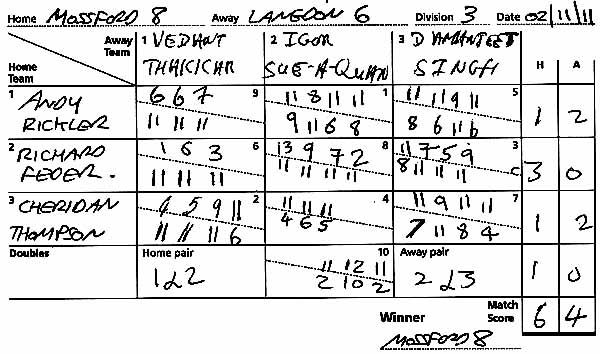 Home MOSSFORD 8 Away LANGDON 6 Division 3 Date 02/11/11
Away Team 1 VEDHANT THAKKAR 2 IGOR SUE-A-QUAN 3 DAMANJEET SINGH H A
Home Team
1 ANDY RICKLER 6 6 7 9 11 8 11 11 1 11 11 9 11 5 1 2
11 11 11 9 11 6 8 8 6 11 6
2 RICHARD FEDER. 1 6 3 6 13 9 7 2 8 11 7 5 9 3 3 0
11 11 11 11 11 11 11 8 11 11 11
3 CHERIDAN THOMPSON 4 5 9 11 2 11 11 11 4 11 9 11 11 7 1 2
11 11 11 6 4 6 5 7 11 8 4
Doubles Home pair 10 Away pair
1&2 11 12 11 2&3 1 0
2 10 2
Winner Match Score 6 4
MOSSFORD 8